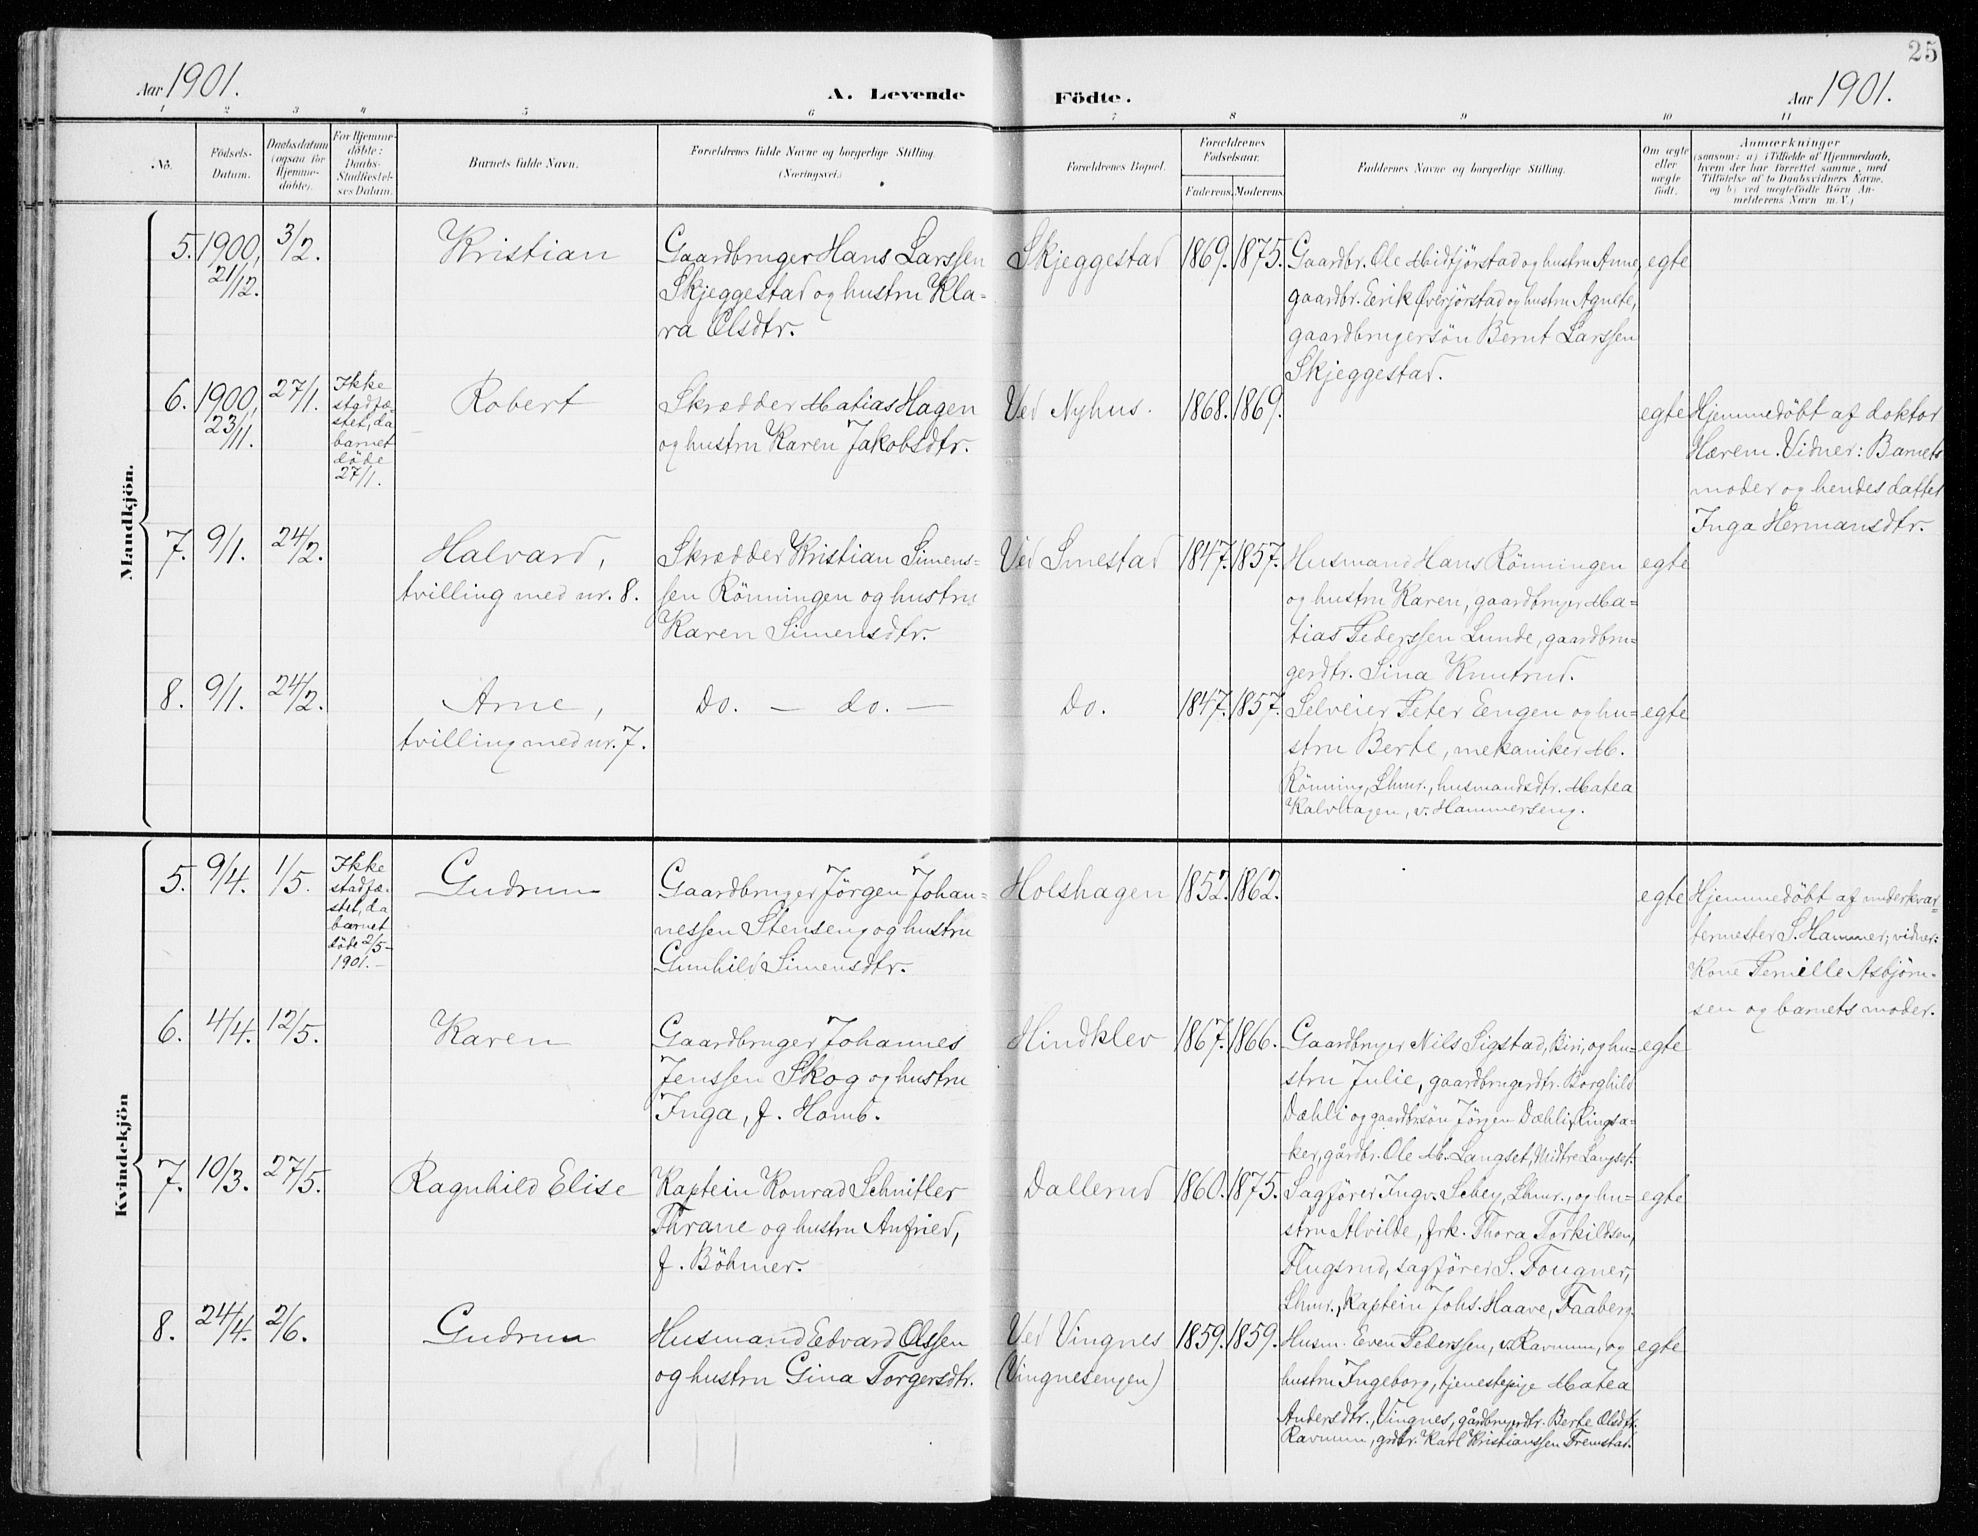 25
Aar 1901.
A. Levende
Födte.
Aar 1901.
1 2 3 4 5 6 7 8 9 10 11
No.
Födsels-
Datum.
Daabsdatum
(ogsaa for
Hjemme-
döbte).
For Hjemme-
döbte:
Daabs-
Stadfæstel-
ses Datum.
Barnets fulde Navn.
Forældrenes fulde Navne og borgerlige Stilling
(Næringsvei.)
Forældrenes Bopæl.
Forældrenes
Födselsaar.
Faderens. Moderens.
Faddernes Navne og borgerlige Stilling.
Om ægte
eller
uægte
födt.
Anmærkninger
(saasom: a) i Tilfælde af Hjemmedaab,
hvem der har forrettet samme, med
Tilföielse af to Daabsvidners Navne,
og b) ved uægtefödte Börn An-
melderens Navn m. V.)
Mandkjön.
5. 1900, 21/12. 3/2. Kristian
Gaardbruger Hans Larssen
Skjeggestad og hustru Kla-
ra Olsdtr.
Skjeggestad 1869. 1875.
Gaardbr. Ole Midtjörstad og hustru Anne,
gaardbr. Erik Överjörstad og hustru Agnete,
gaardbrugersön Bernt Larssen
Skjeggestad.
egte
6. 1900, 23/11. 27/1.
Ikke
stadfæ-
stet, da
barnet
döde
27/1.
Robert
Skrædder Matias Hagen
og hustru Karen Jakobsdtr.
Ved Nyhus. 1868. 1869.
egte
Hjemmedöbt af doktor
Hærem. Vidner: Barnets
moder og hendes datter
Inga Hermansdtr.
7. 9/1. 24/2.
Halvard,
tvilling med nr. 8.
Skrædder Kristian Simens-
sen Rönningen og hustru
Karen Simensdtr.
Ved Smestad 1847. 1857.
Husmand Hans Rönningen
og hustru Karen, gaardbruger Ma-
tias Pederssen Lunde, gaardbru-
gerdtr. Sina Knutrud.
egte
8. 9/1. 24/2.
Arne,
tvilling med nr. 7.
Do. — do. —
Do. 1847. 1857.
Selveier Peter Engen og hu-
stru Berte, mekaniker M.
Rönning, Lhmr., husmandsdtr. Matea
Kalvhagen, v. Hammerseng.
egte
Kvindekjön
5. 9/4. 1/5.
Ikke
stadfæ-
stet, da
barnet
döde 2/5-
1901.-
Gudrun
Gaardbruger Jörgen Johan-
nessen Stenseng og hustru
Gunhild Simensdtr.
Holshagen 1852. 1862.
egte
Hjemmedöbt af underkvar-
termester S. Hammer; vidner:
Kone Pernille Asbjörn-
sen og barnets moder.
6. 4/4. 12/5. Karen
Gaardbruger Johannes
Jenssen Skog og hustru
Inga, f. Homb.
Hindklev 1867. 1866.
Gaardbruger Nils Sigstad, Biri, og hu-
stru Julie, gaardbrugerdtr. Borghild
Dæhli og gaardbrsön Jörgen Dæhli, Ringsa-
ker, gårdbr. Ole M. Langset, Midtre Langset.
egte
7. 10/3. 27/5. Ragnhild Elise
Kaptein Konrad Schnitler
Thrane og hustru Anfried,
f. Böhmer.
Dallerud 1860. 1875.
Sagförer Ingv. Schey, Lhmr., og hu-
stru Alvilde, frk. Thora Torkildsen,
Flugsrud, sagförer S. Fougner,
Lhmr., Kaptein Johs. Haave, Faaberg.
egte
8. 24/4. 2/6. Gudrun
Husmand Edvard Olssen
og hustru Gina Torgersdtr.
Ved Vingnes
(Vingnesengen)
1859. 1859.
Husm. Even Pederssen, v. Ravnum, og
hustru Ingeborg, tjenestepige Matea
Andersdtr., Vingnes, gårdbrugerdtr. Berte Olsdtr.
Ravnum, grdbr. Karl Kristianssen Fremstad.
egte